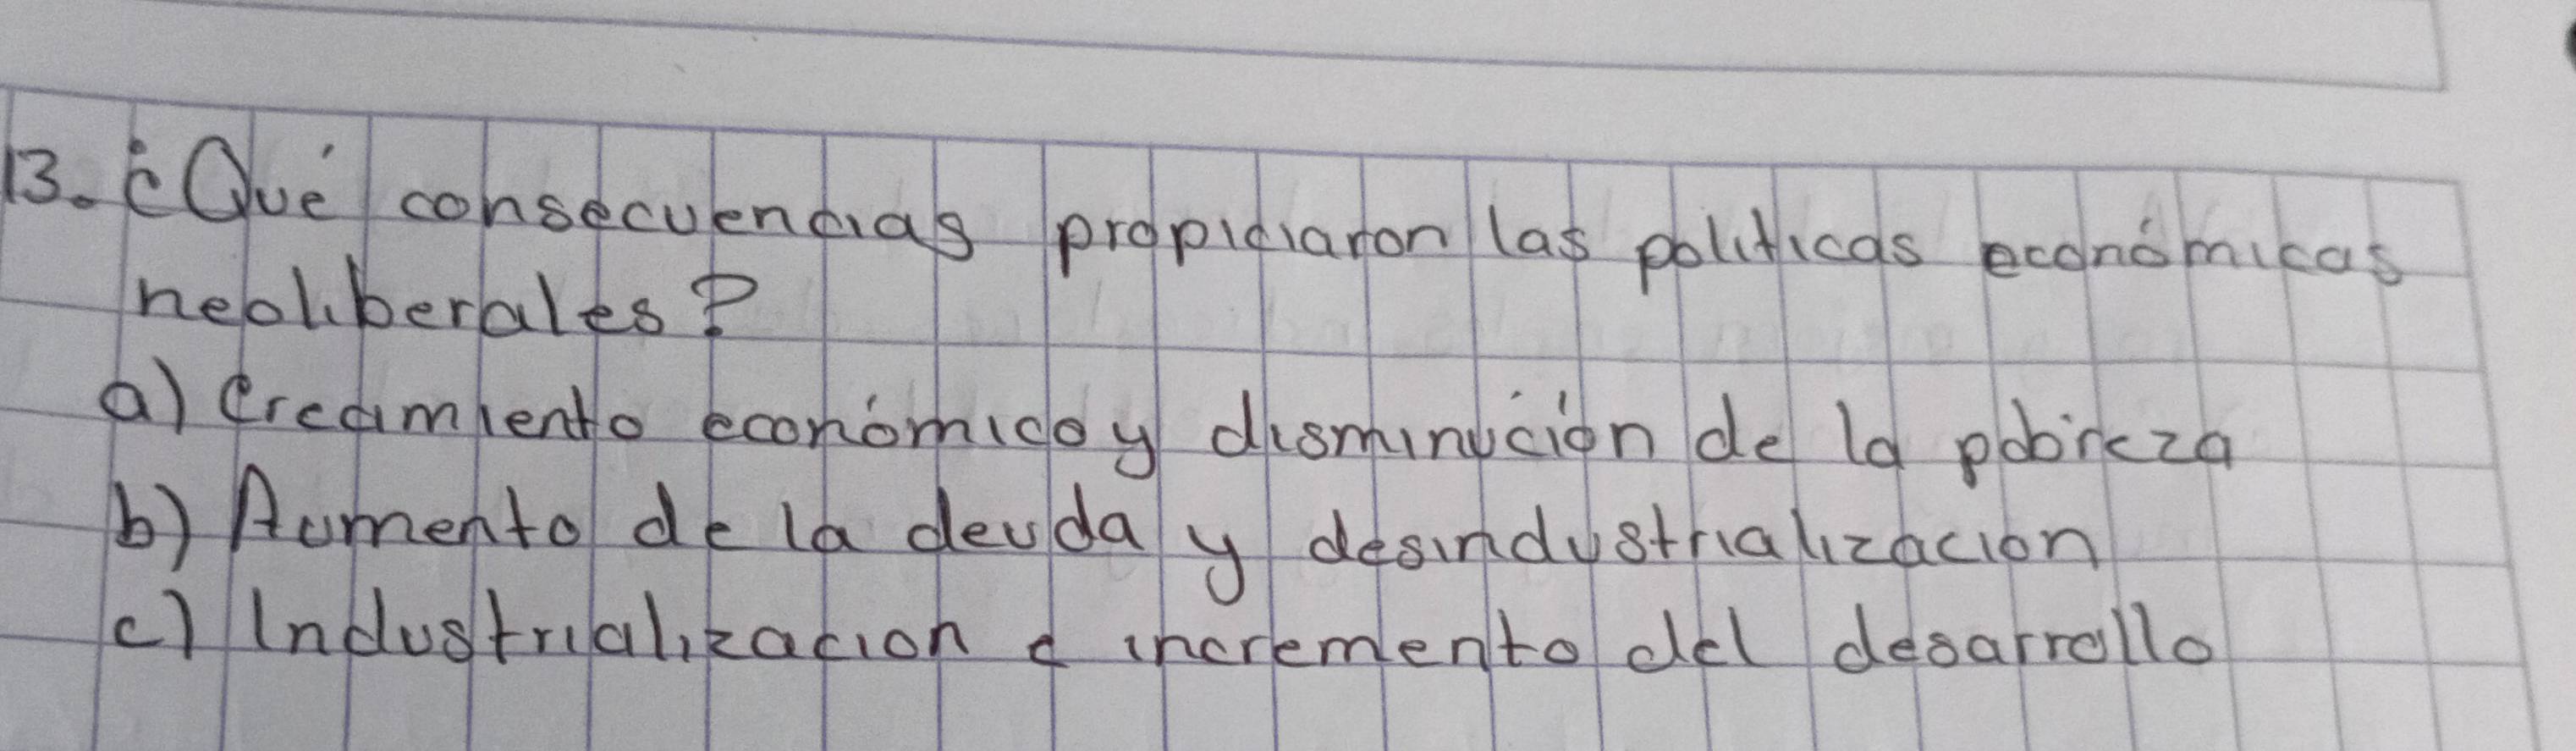 13. ¿Qué consecuencias propiciaron las políticas económicas
neoliberales?
a) Crecimiento económico y disminución de la pobreza
b) Aumento de la deuda y desindustrialización
c) Industrialización e incremento del desarrollo